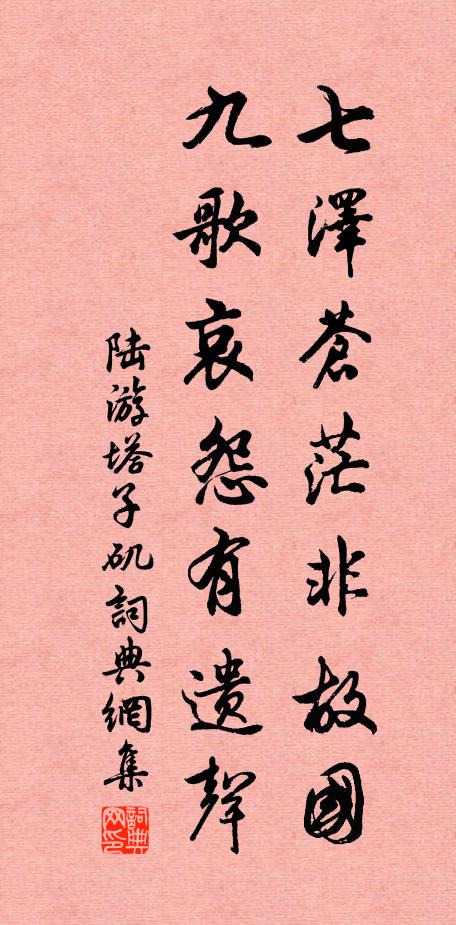 七澤蒼茫非故國
九歌哀怨有遺聲
陆游塔子矶詞典網集
詞典网印